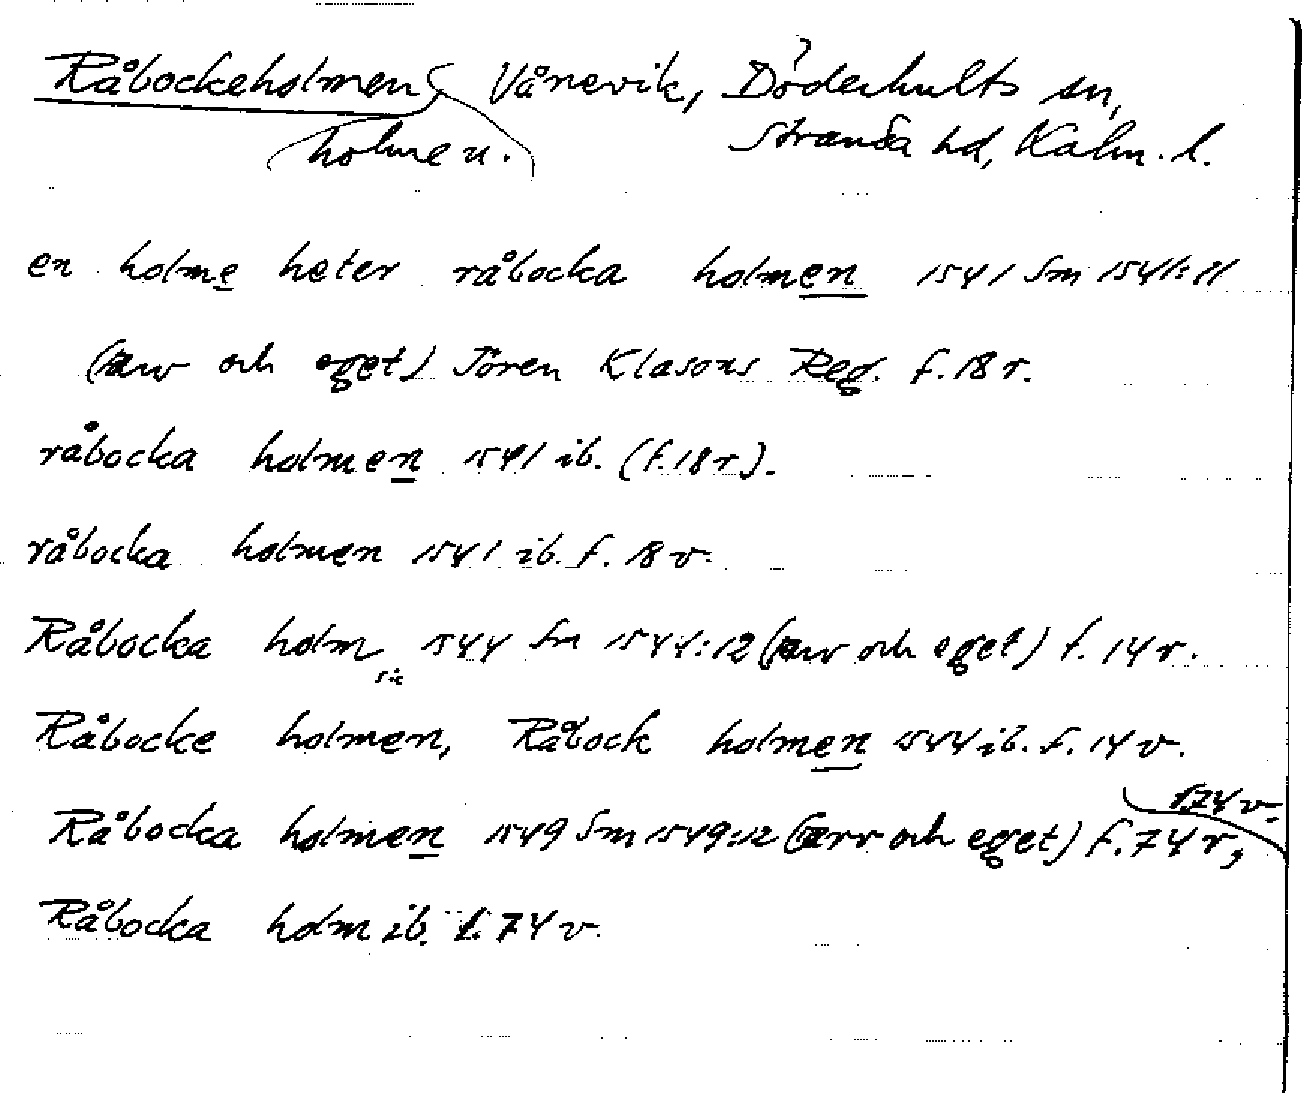 Råbockeholmen, Vånevik, Döderhults sn,
holmen. Stranda hd, Kalm. l.
en holme heter råbocka holmen 1541 Sm 1541:11
(arv och eget) Jören Klasons Reg. f. 18 r.
råbocka holmen 1541 ib. (f. 18 r).
råbocka holmen 1541 ib. f. 18 v.
Råbocka holm 1544 Sm 1544:12 (arv och eget) f. 14 r.
sic
Råbocke holmen, Råbock holmen 1544 ib. f. 14 v.
f.74 v.
Råbocka holmen 1549 Sm 1549:12 (arv och eget) f. 74 r,
Råbocka holm ib. f. 74 v.